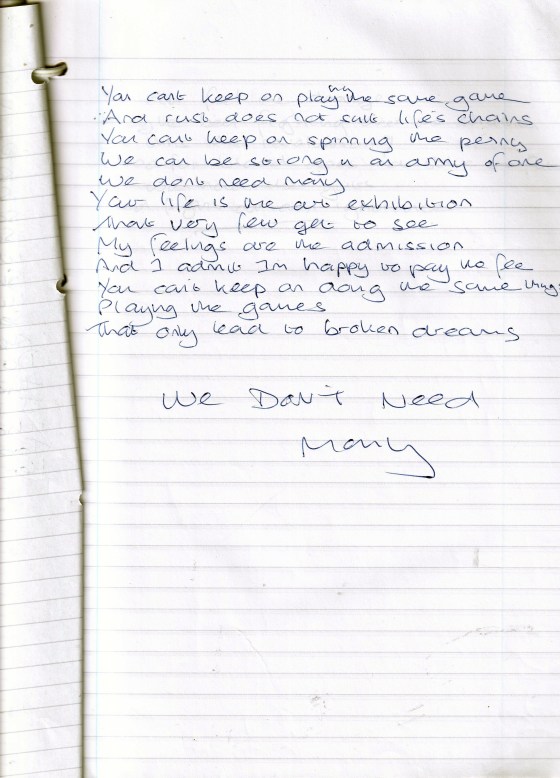 You can't keep on playing the same game
And rust does not suit life's chains
You can't keep on spinning the penny
We can be strong in an army of one
We dont need many
Your life is the art exhibition
That very few get to see
My feelings are the admission
And I admit Im happy to pay the fee
You can't keep on doing the same thing
Playing the games
That only lead to broken dreams
We Don't Need
Many